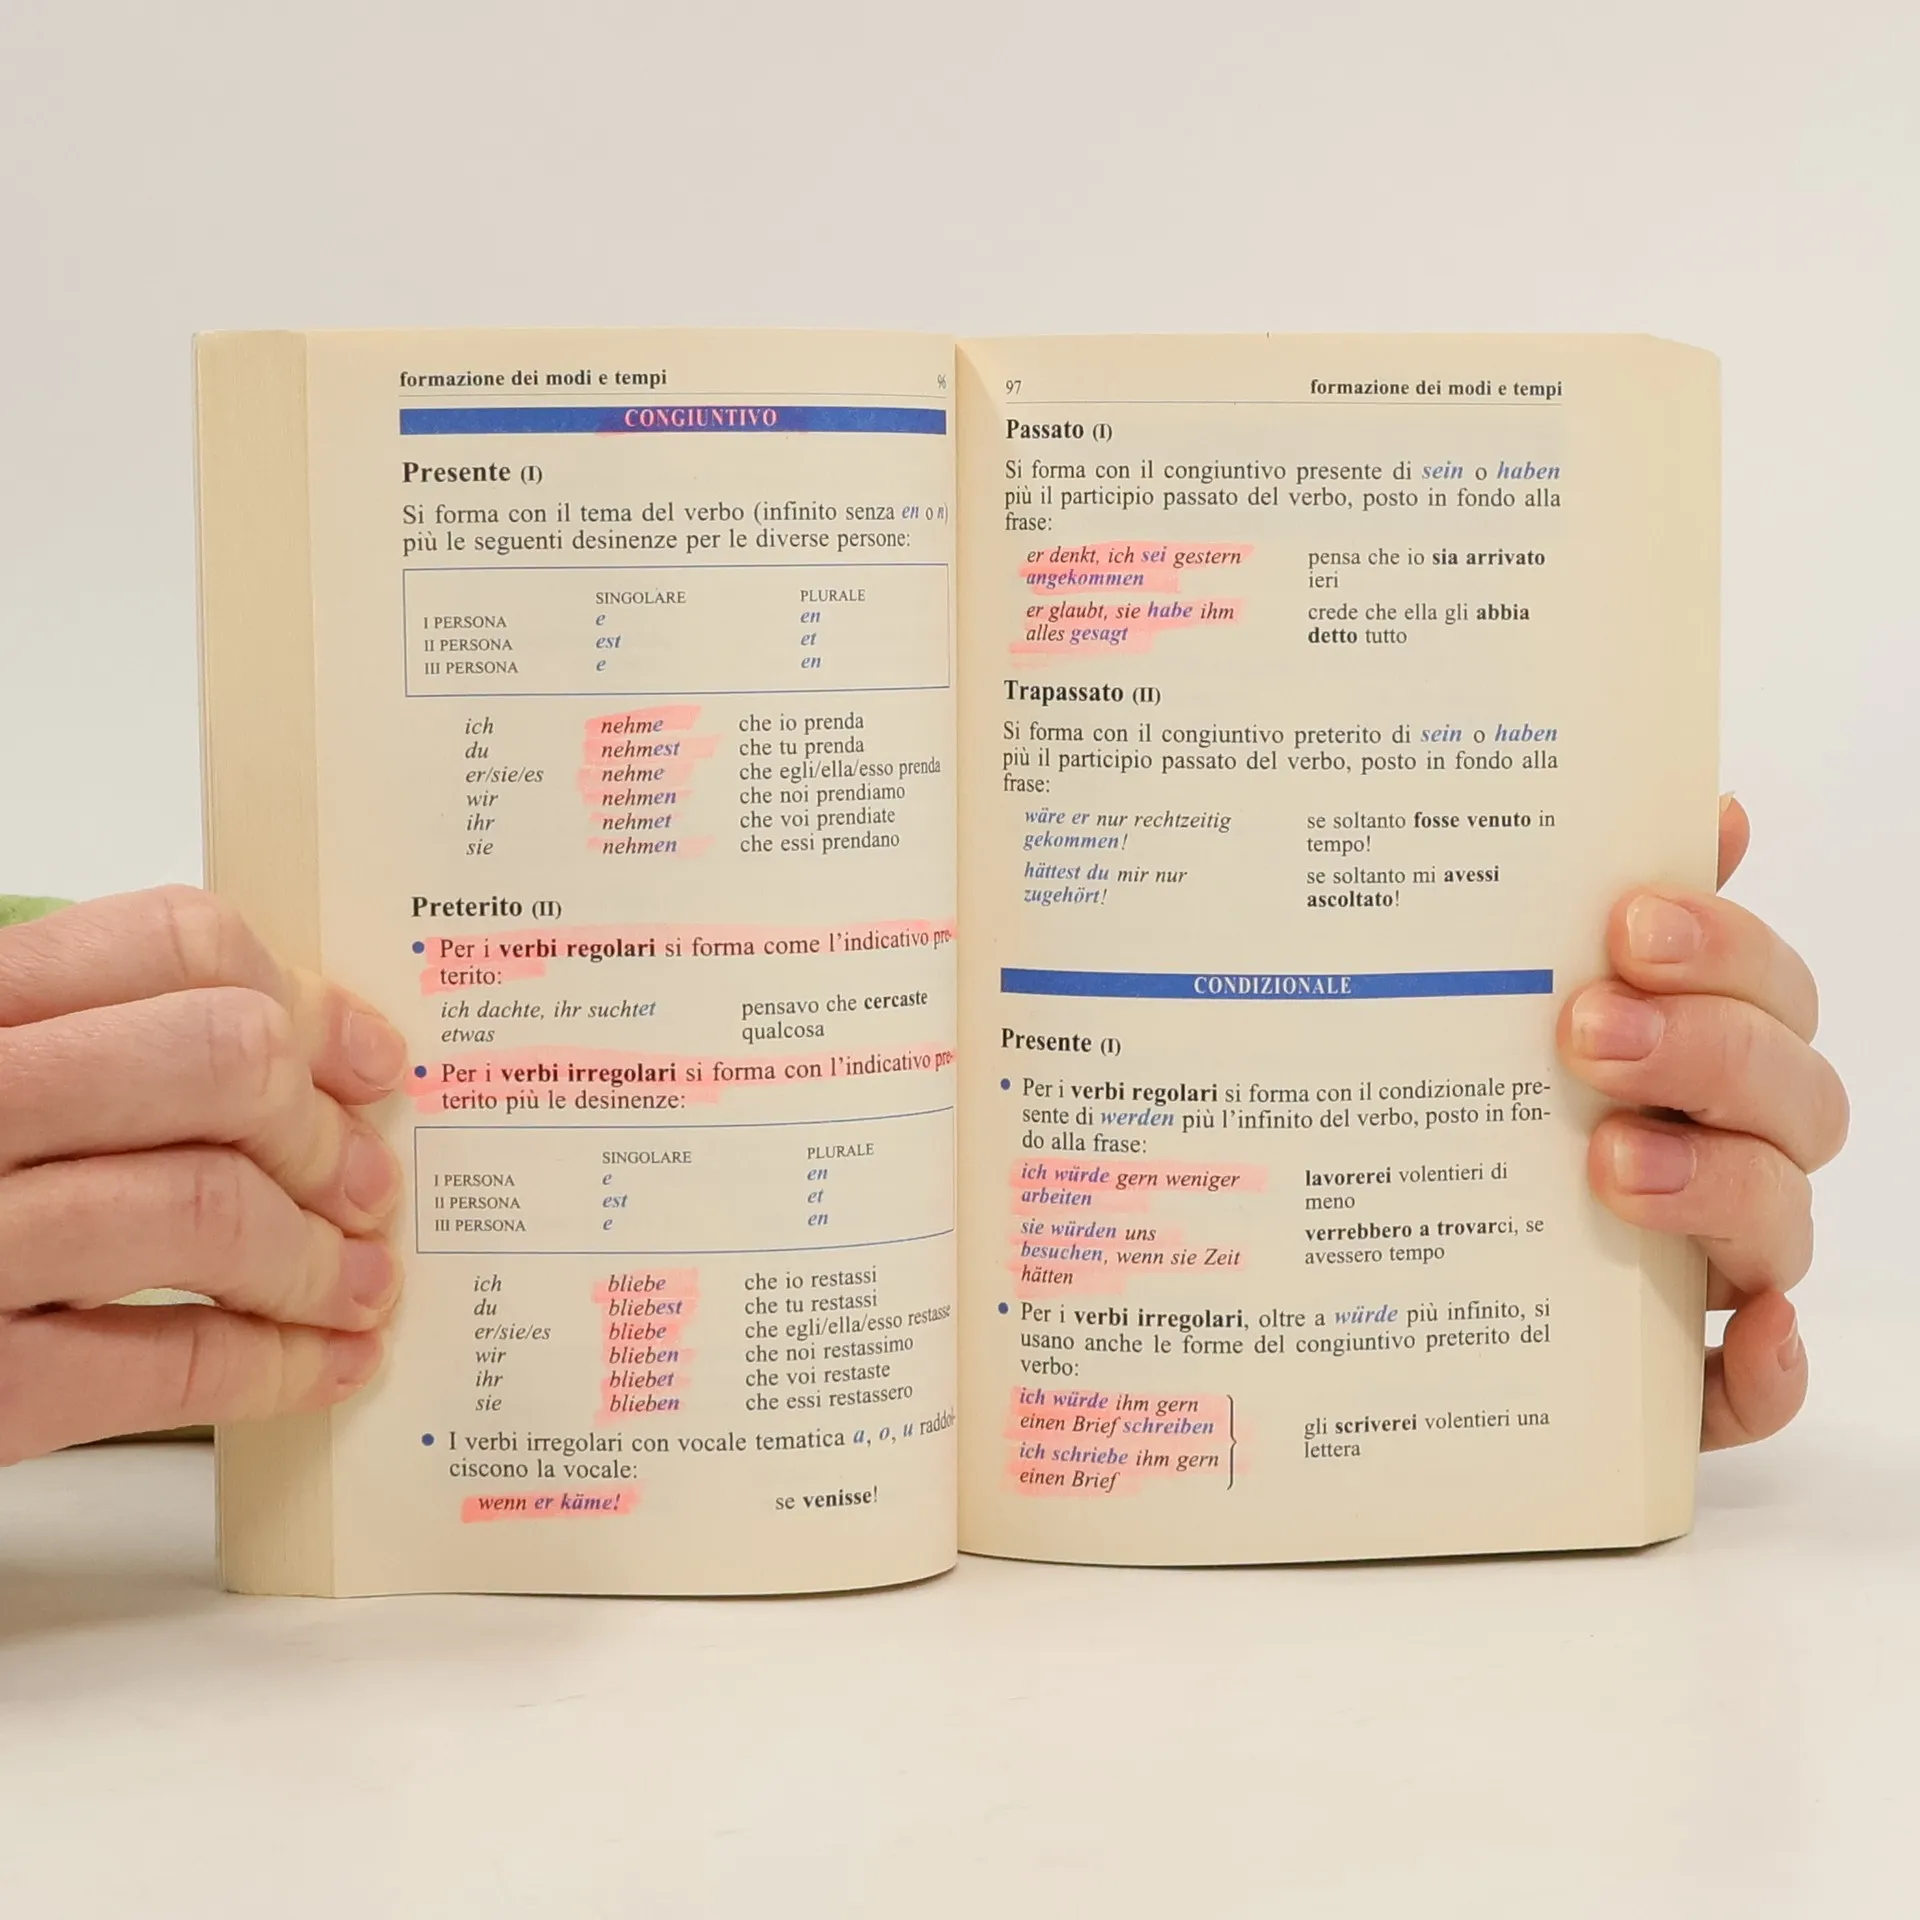 formazione dei modi e tempi 96
CONGIUNTIVO
Presente (I)
Si forma con il tema del verbo (infinito senza en o n)
più le seguenti desinenze per le diverse persone:
SINGOLARE PLURALE
I PERSONA e en
II PERSONA est et
III PERSONA e en
ich nehme che io prenda
du nehmest che tu prenda
er/sie/es nehme che egli/ella/esso prenda
wir nehmen che noi prendiamo
ihr nehmet che voi prendiate
sie nehmen che essi prendano
Preterito (II)
• Per i verbi regolari si forma come l'indicativo pre-
terito:
ich dachte, ihr suchtet pensavo che cercaste
etwas qualcosa
• Per i verbi irregolari si forma con l'indicativo pre-
terito più le desinenze:
SINGOLARE PLURALE
I PERSONA e en
II PERSONA est et
III PERSONA e en
ich bliebe che io restassi
du bliebest che tu restassi
er/sie/es bliebe che egli/ella/esso restasse
wir blieben che noi restassimo
ihr bliebet che voi restaste
sie blieben che essi restassero
• I verbi irregolari con vocale tematica a, o, u raddol-
ciscono la vocale:
wenn er käme! se venisse!
97 formazione dei modi e tempi
Passato (I)
Si forma con il congiuntivo presente di sein o haben
più il participio passato del verbo, posto in fondo alla
frase:
er denkt, ich sei gestern pensa che io sia arrivato
angekommen ieri
er glaubt, sie habe ihm crede che ella gli abbia
alles gesagt detto tutto
Trapassato (II)
Si forma con il congiuntivo preterito di sein o haben
più il participio passato del verbo, posto in fondo alla
frase:
wäre er nur rechtzeitig se soltanto fosse venuto in
gekommen! tempo!
hättest du mir nur se soltanto mi avessi
zugehört! ascoltato!
CONDIZIONALE
Presente (I)
• Per i verbi regolari si forma con il condizionale pre-
sente di werden più l'infinito del verbo, posto in fon-
do alla frase:
ich würde gern weniger lavorerei volentieri di
arbeiten meno
sie würden uns verrebbero a trovarci, se
besuchen, wenn sie Zeit avessero tempo
hätten
• Per i verbi irregolari, oltre a würde più infinito, si
usano anche le forme del congiuntivo preterito del
verbo:
ich würde ihm gern
einen Brief schreiben gli scriverei volentieri una
ich schriebe ihm gern lettera
einen Brief